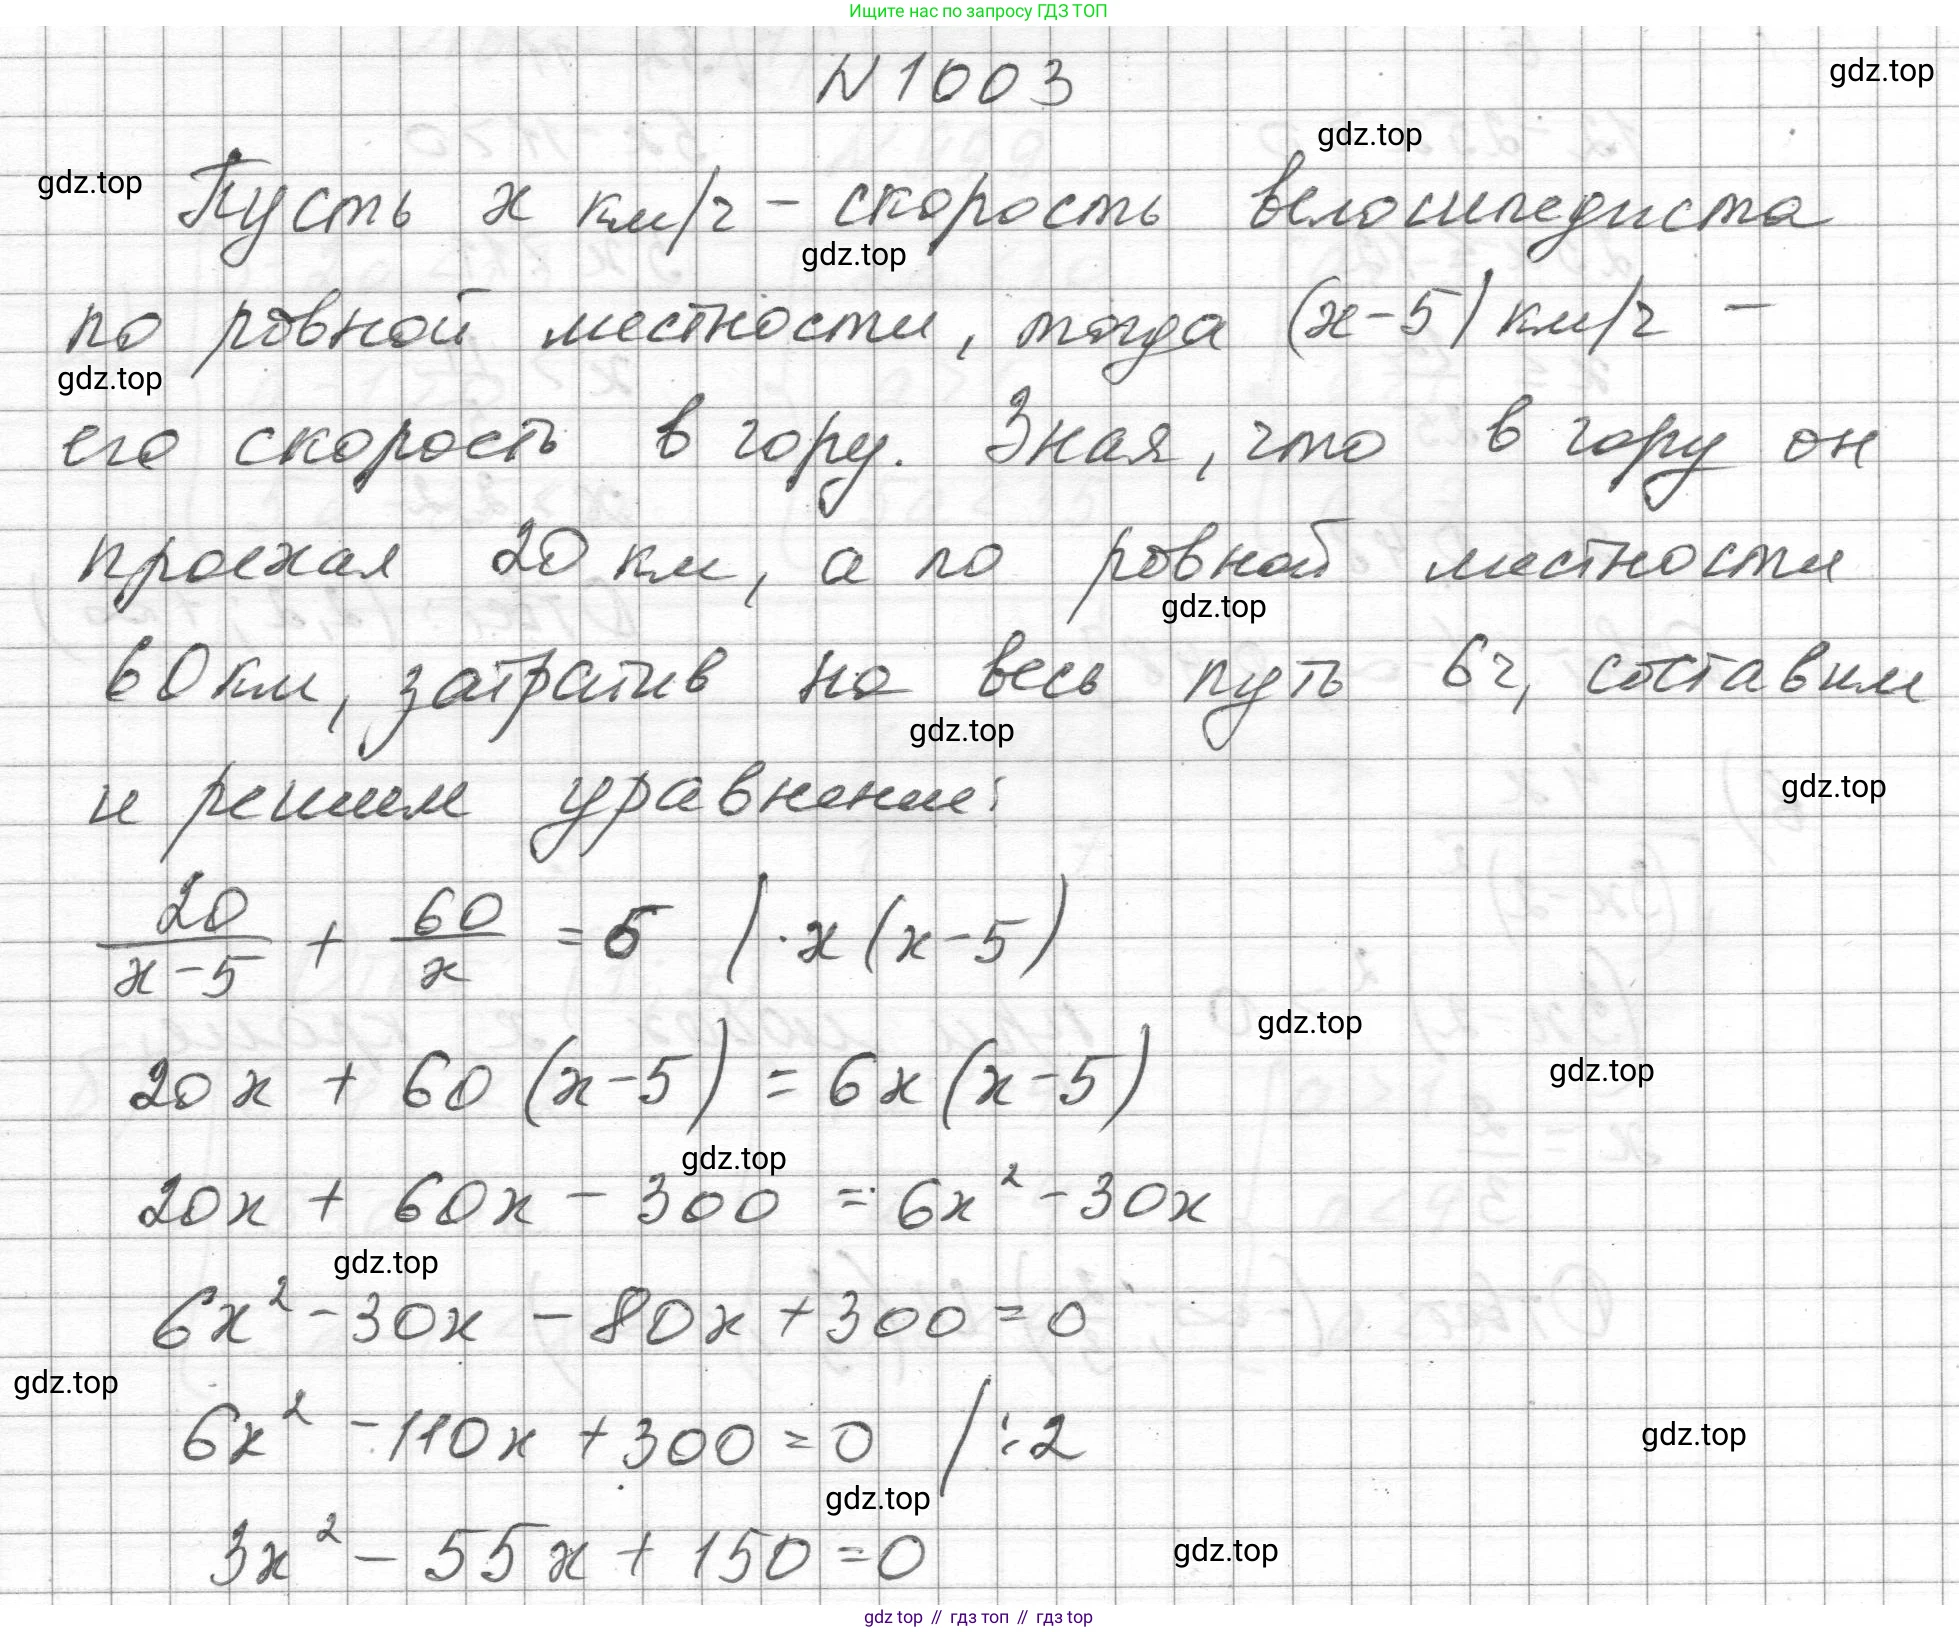 Ищите нас по запросу ГДЗ ТОП
N 1003
gdz.top
gdz.top
gdz.top
Пусть x км/ч – скорость велосипедиста
gdz.top
по ровной местности, тогда (x-5) км/ч –
gdz.top
его скорость в гору. Зная, что в гору он
проехал 20 км, а по ровной местности
gdz.top
60 км, затратив на весь путь 6ч, составим
gdz.top
и решим уравнение:
gdz.top
20/(x-5) + 60/x = 6 | · x(x-5)
gdz.top
gdz.top
20x + 60(x-5) = 6x(x-5)
gdz.top
20x + 60x - 300 = 6x² - 30x
gdz.top
6x² - 30x - 80x + 300 = 0
gdz.top
6x² - 110x + 300 = 0 | :2
gdz.top
gdz.top
3x² - 55x + 150 = 0
gdz.top
gdz top // гдз топ // гдз top